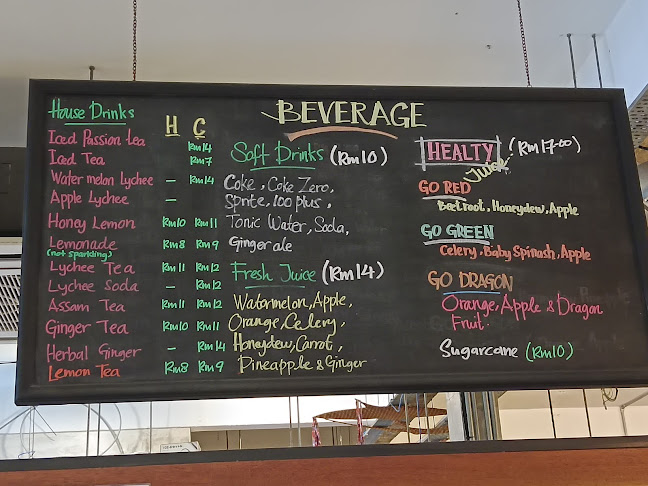 BEVERAGE
House Drinks H C
Iced Passion tea RM14
Iced Tea RM7
Water melon Lychee – RM14
Apple Lychee –
Honey Lemon RM10 RM11
Lemonade RM8 RM9
(not sparkling)
Lychee Tea RM11 RM12
Lychee Soda – RM12
Assam Tea RM11 RM12
Ginger Tea RM10 RM11
Herbal Ginger – RM14
Lemon Tea RM8 RM9
Soft Drinks (RM10)
Coke, Coke Zero,
Sprite, 100 plus,
Tonic Water, Soda,
Ginger ale
Fresh Juice (RM14)
Watermelon, Apple,
Orange, Celery,
Honeydew, Carrot,
Pineapple & Ginger
HEALTY (RM17.00)
Juice
GO RED
Beetroot, Honeydew, Apple
GO GREEN
Celery, Baby Spinash, Apple
GO DRAGON
Orange, Apple & Dragon
Fruit.
Sugarcane (RM10)